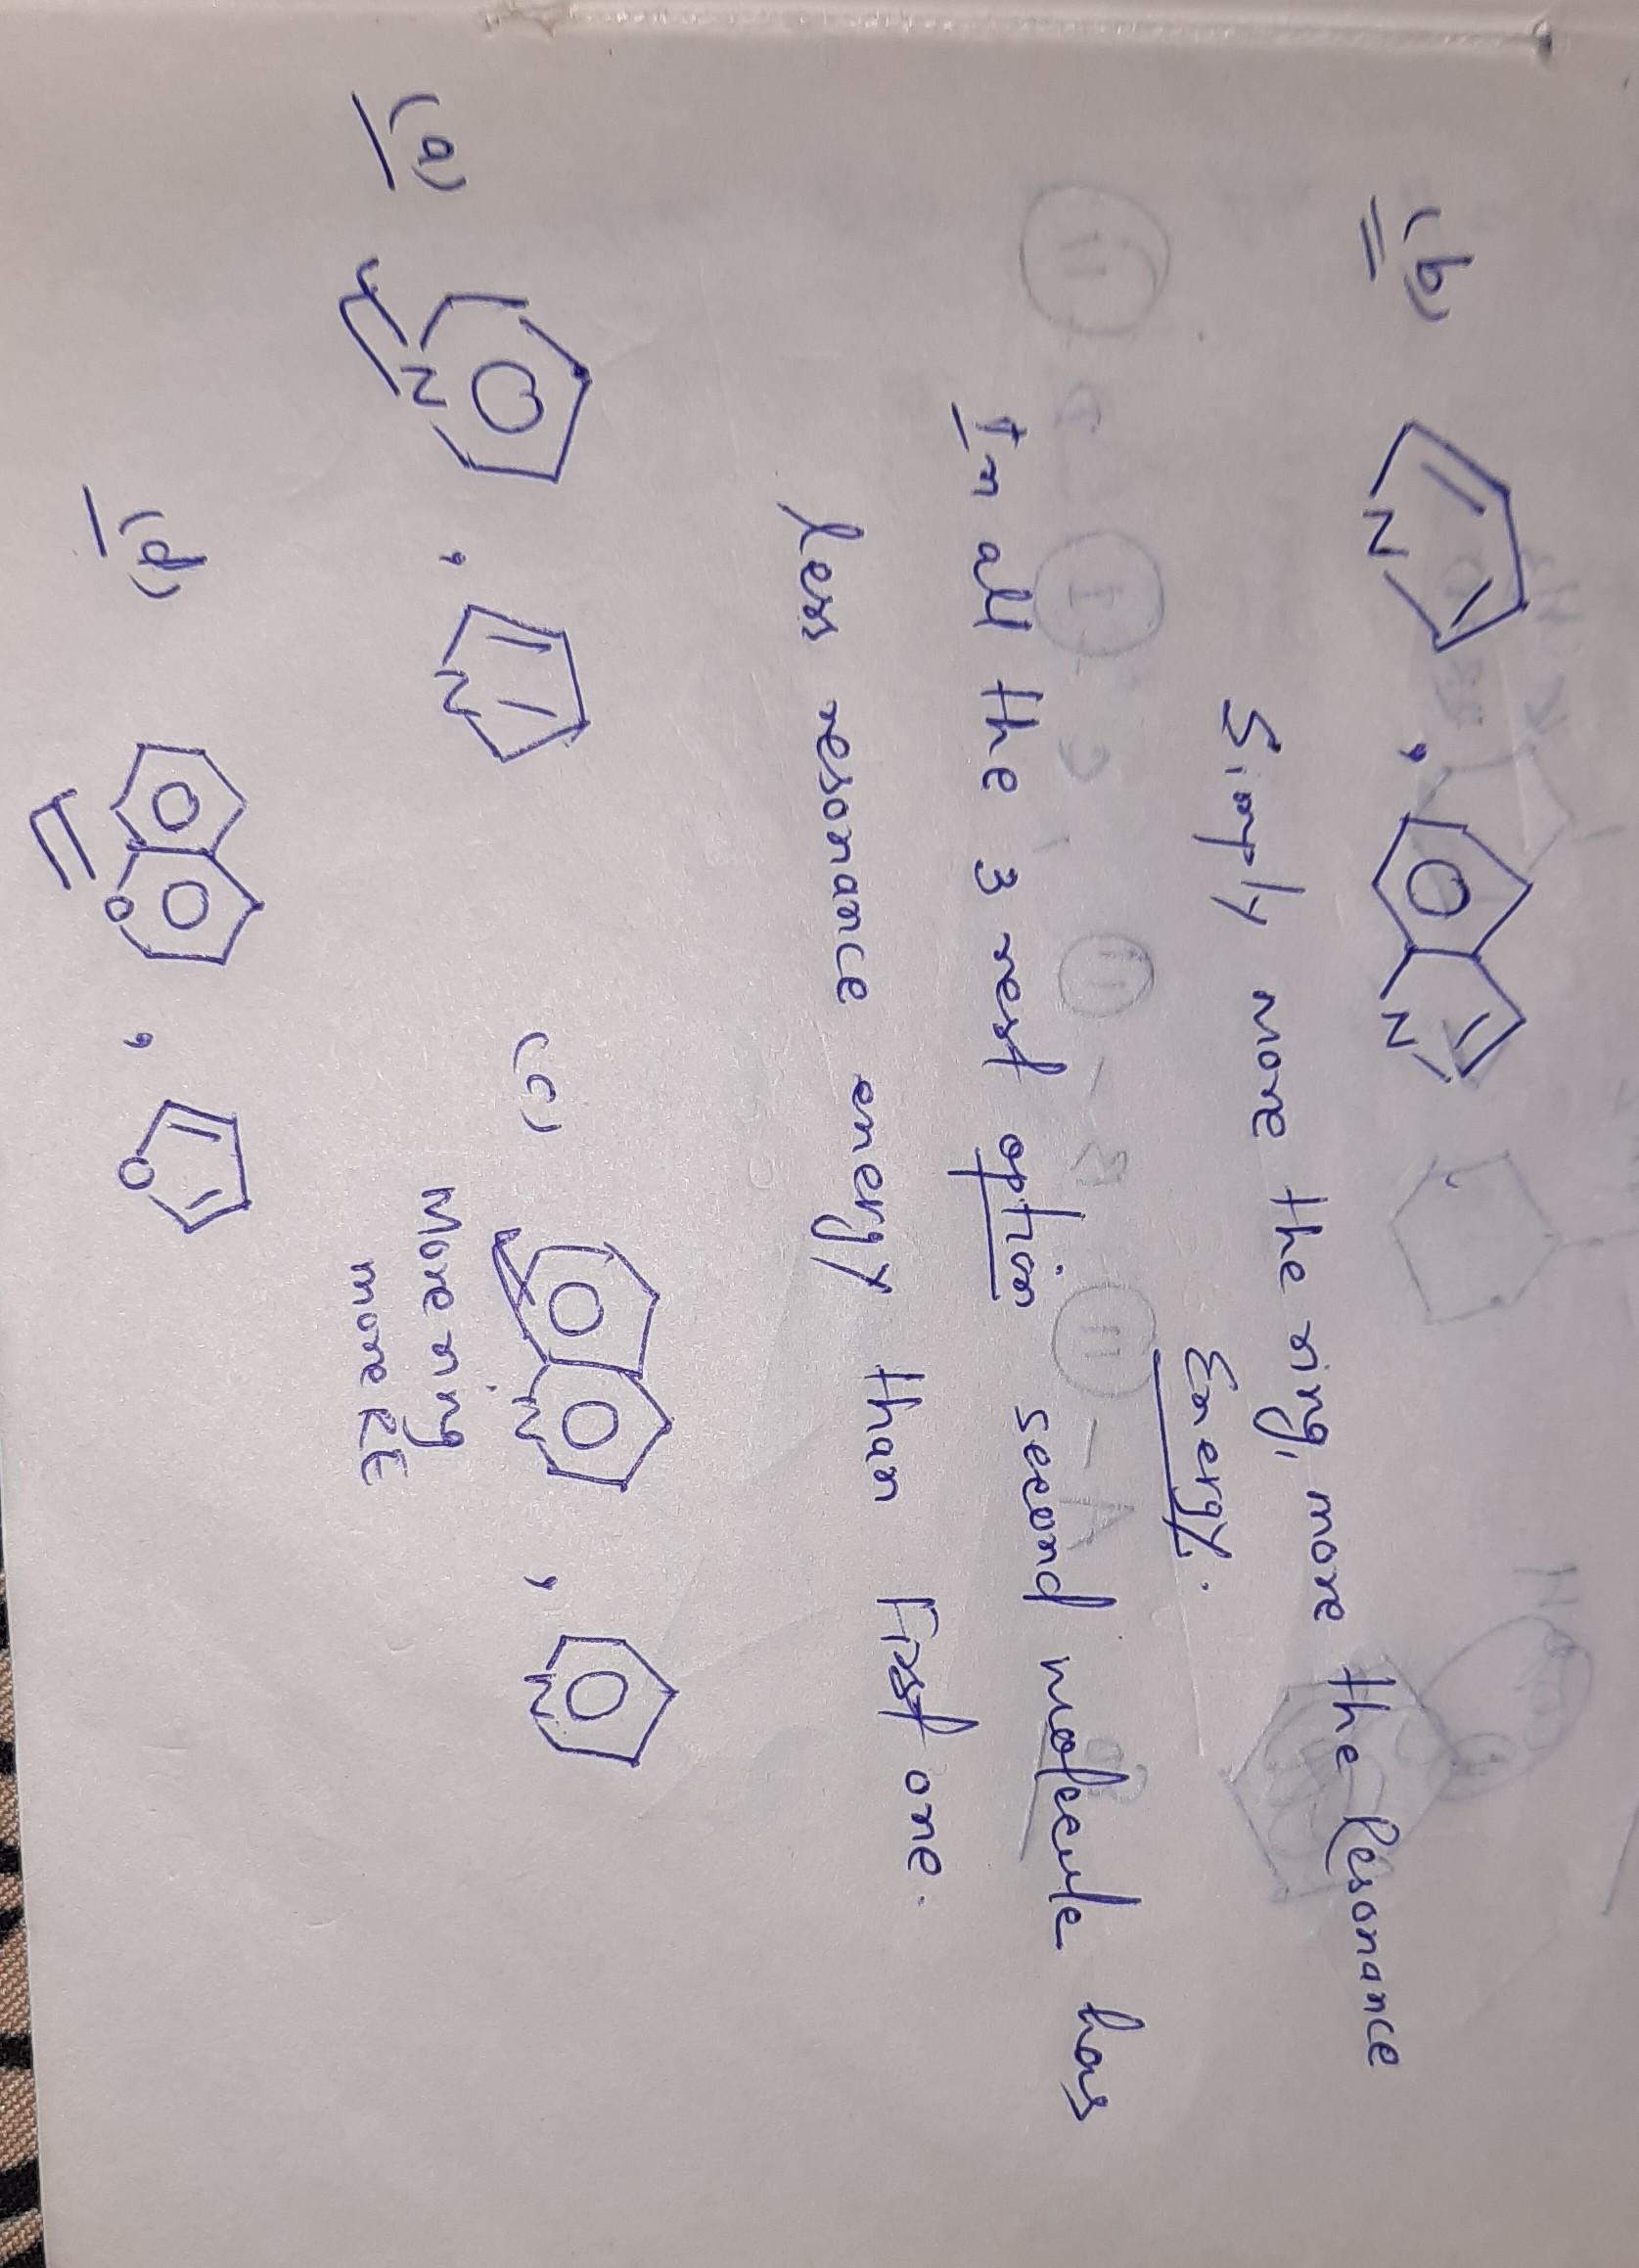 (b)
N , N
Simply more the ring, more the Resonance
Energy.
In all the 3 rest option second molecule has
less resonance energy than First one.
(a)
N , N
(c)
N , N
More ring
more RE
(d)
O , O